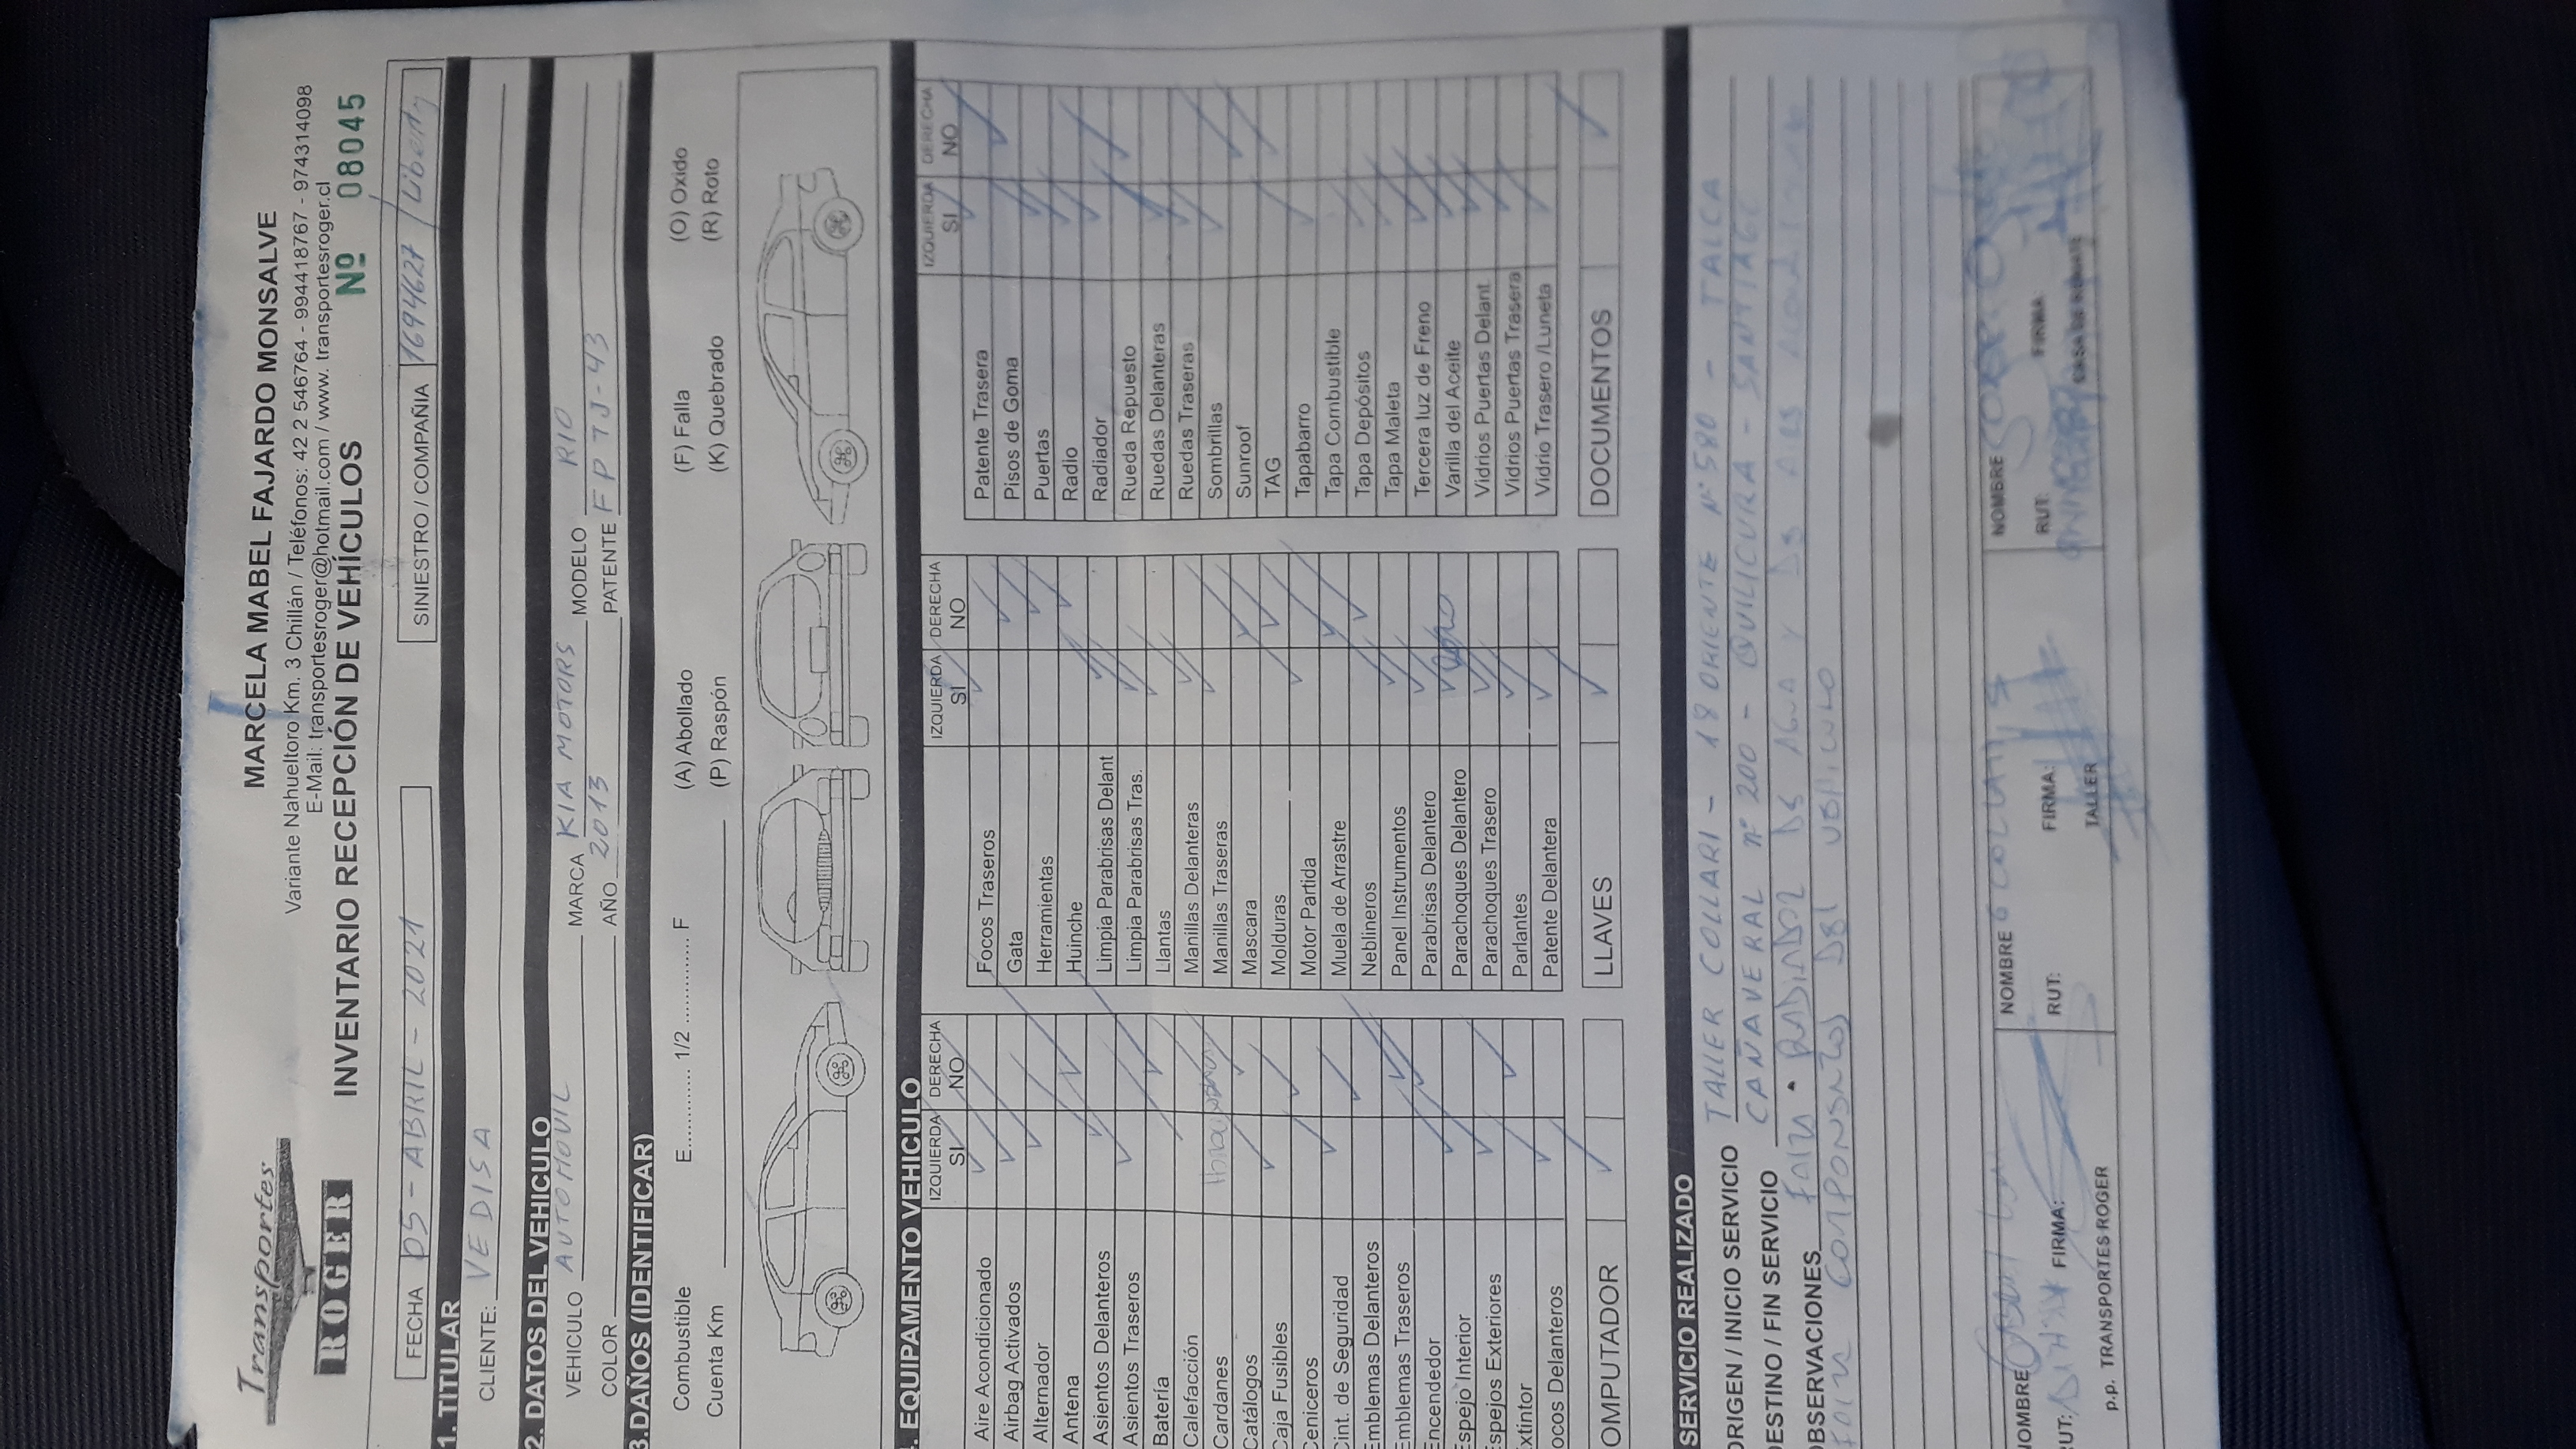 Transportes
ROGER
MARCELA MABEL FAJARDO MONSALVE
Variante Nahueltoro Km. 3 Chillán / Teléfonos: 42 2 546764 - 994418767 - 974314098
E-Mail: transportesroger@hotmail.com / www. transportesroger.cl
INVENTARIO RECEPCIÓN DE VEHÍCULOS
Nº 08045
FECHA 05 - ABRIL - 2021
SINIESTRO / COMPAÑIA 1694627 / Liberty
1. TITULAR
CLIENTE: VEDISA
2. DATOS DEL VEHICULO
VEHICULO AUTOMOVIL MARCA KIA MOTORS MODELO RIO
COLOR AÑO 2013 PATENTE FPTJ-43
3.DAÑOS (IDENTIFICAR)
Combustible E............ 1/2 ............... F (A) Abollado (F) Falla (O) Oxido
Cuenta Km (P) Raspón (K) Quebrado (R) Roto
. EQUIPAMENTO VEHICULO
IZQUIERDA DERECHA
SI NO
Aire Acondicionado
Airbag Activados
Alternador
Antena
Asientos Delanteros
Asientos Traseros
Batería
Calefacción
Cardanes
Catálogos
Caja Fusibles
Ceniceros
Cint. de Seguridad
Emblemas Delanteros
Emblemas Traseros
Encendedor
Espejo Interior
Espejos Exteriores
Extintor
ocos Delanteros
OMPUTADOR
IZQUIERDA DERECHA
SI NO
Focos Traseros
Gata
Herramientas
Huinche
Limpia Parabrisas Delant
Limpia Parabrisas Tras.
Llantas
Manillas Delanteras
Manillas Traseras
Mascara
Molduras
Motor Partida
Muela de Arrastre
Neblineros
Panel Instrumentos
Parabrisas Delantero
Parachoques Delantero
Parachoques Trasero
Parlantes
Patente Delantera
LLAVES
IZQUIERDA DERECHA
SI NO
Patente Trasera
Pisos de Goma
Puertas
Radio
Radiador
Rueda Repuesto
Ruedas Delanteras
Ruedas Traseras
Sombrillas
Sunroof
TAG
Tapabarro
Tapa Combustible
Tapa Depósitos
Tapa Maleta
Tercera luz de Freno
Varilla del Aceite
Vidrios Puertas Delant.
Vidrios Puertas Trasera
Vidrio Trasero /Luneta
DOCUMENTOS
SERVICIO REALIZADO
ORIGEN / INICIO SERVICIO TALLER COLLARI - 18 ORIENTE Nº 580 - TALCA
DESTINO / FIN SERVICIO CAÑAVERAL Nº 200 - QUILICURA - SANTIAGO
OBSERVACIONES RADIADOR DE AGUA Y DE AIRE
COMPONENTES DEL VEHICULO
NOMBRE
RUT: FIRMA:
p.p. TRANSPORTES ROGER
NOMBRE
RUT: FIRMA:
TALLER
NOMBRE
RUT: FIRMA: